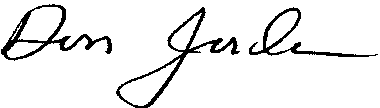 Don Jordan